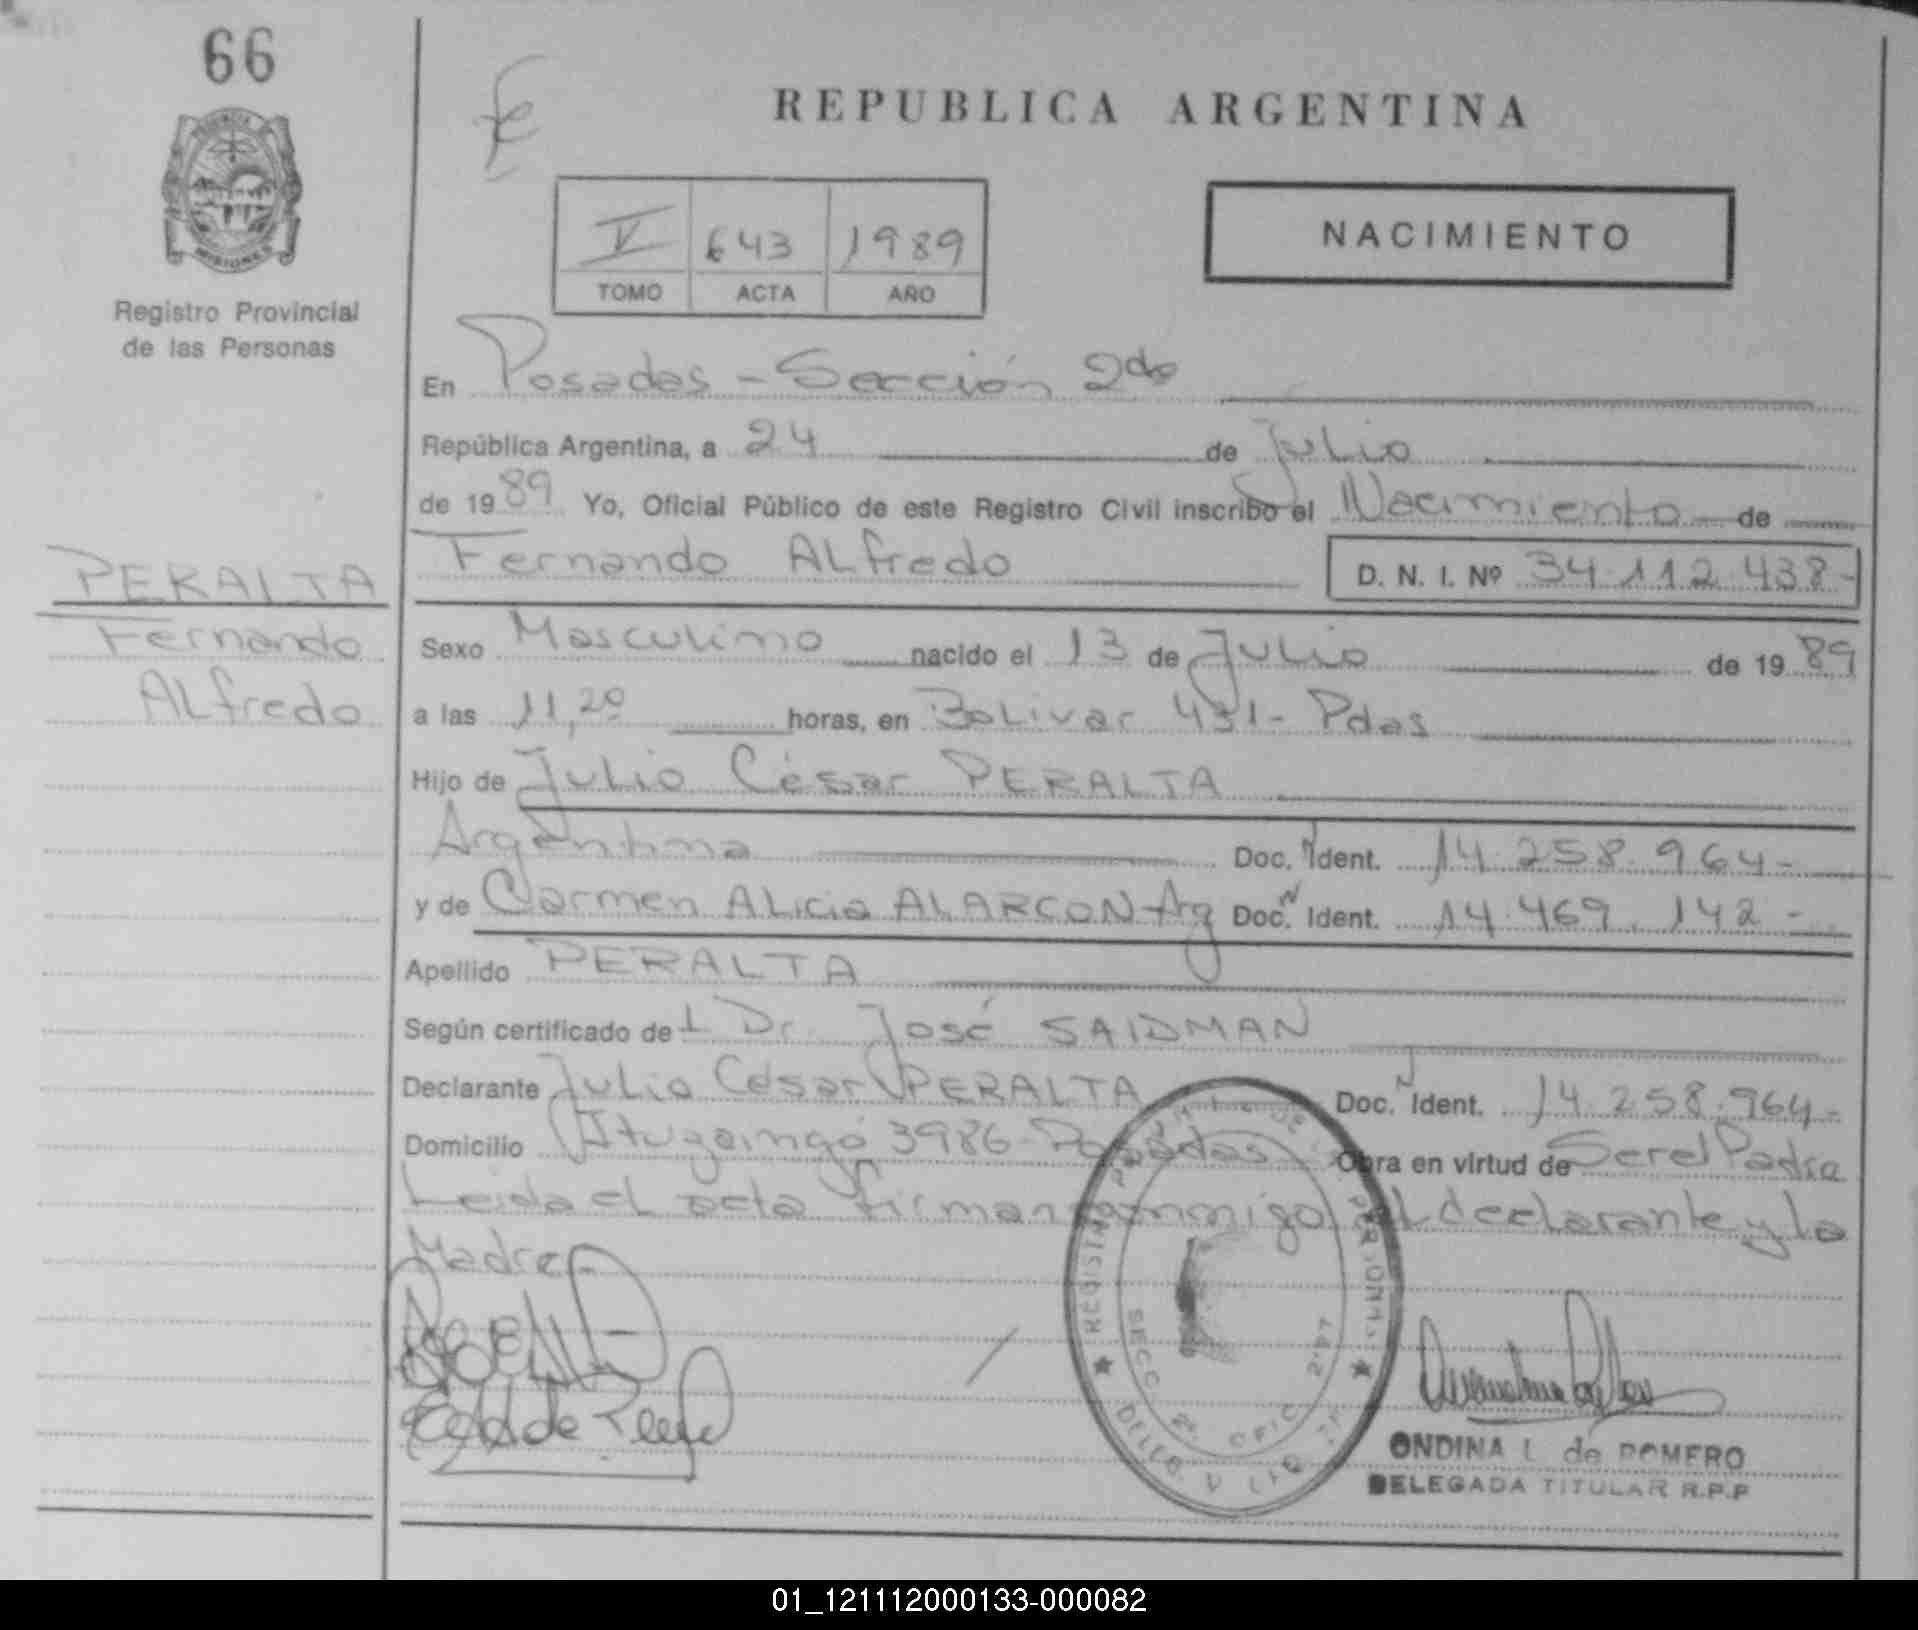 66
REPUBLICA ARGENTINA
MISIONES
Registro Provincial
de las Personas
V 643 1989
TOMO ACTA AÑO
NACIMIENTO
En Posadas - Sección 2da
República Argentina, a 24 de Julio
de 1989 Yo, Oficial Público de este Registro Civil inscribo el Nacimiento de
Fernando ALfredo D. N. I. Nº 34.112.438-
PERALTA
Fernando
ALfredo
Sexo Masculino nacido el 13 de Julio de 1989
a las 11,20 horas, en Bolivar 431- Pdas
Hijo de Julio César PERALTA
Argentina Doc. Ident. 14.258.964-
y de Carmen ALicia ALARCON-Arg Doc. Ident. 14.469.142-
Apellido PERALTA
Según certificado de L Dr. José SAIDMAN
Declarante Julio César PERALTA Doc. Ident. 14.258.964-
Domicilio Ituzaingó 3986-Posadas Obra en virtud de Ser el Padre
Leida el acta firman conmigo el declarante y la
Madre.-
SECC. 2ª OFIC.
ONDINA L. de ROMERO
DELEGADA TITULAR R.P.P
01_121112000133-000082